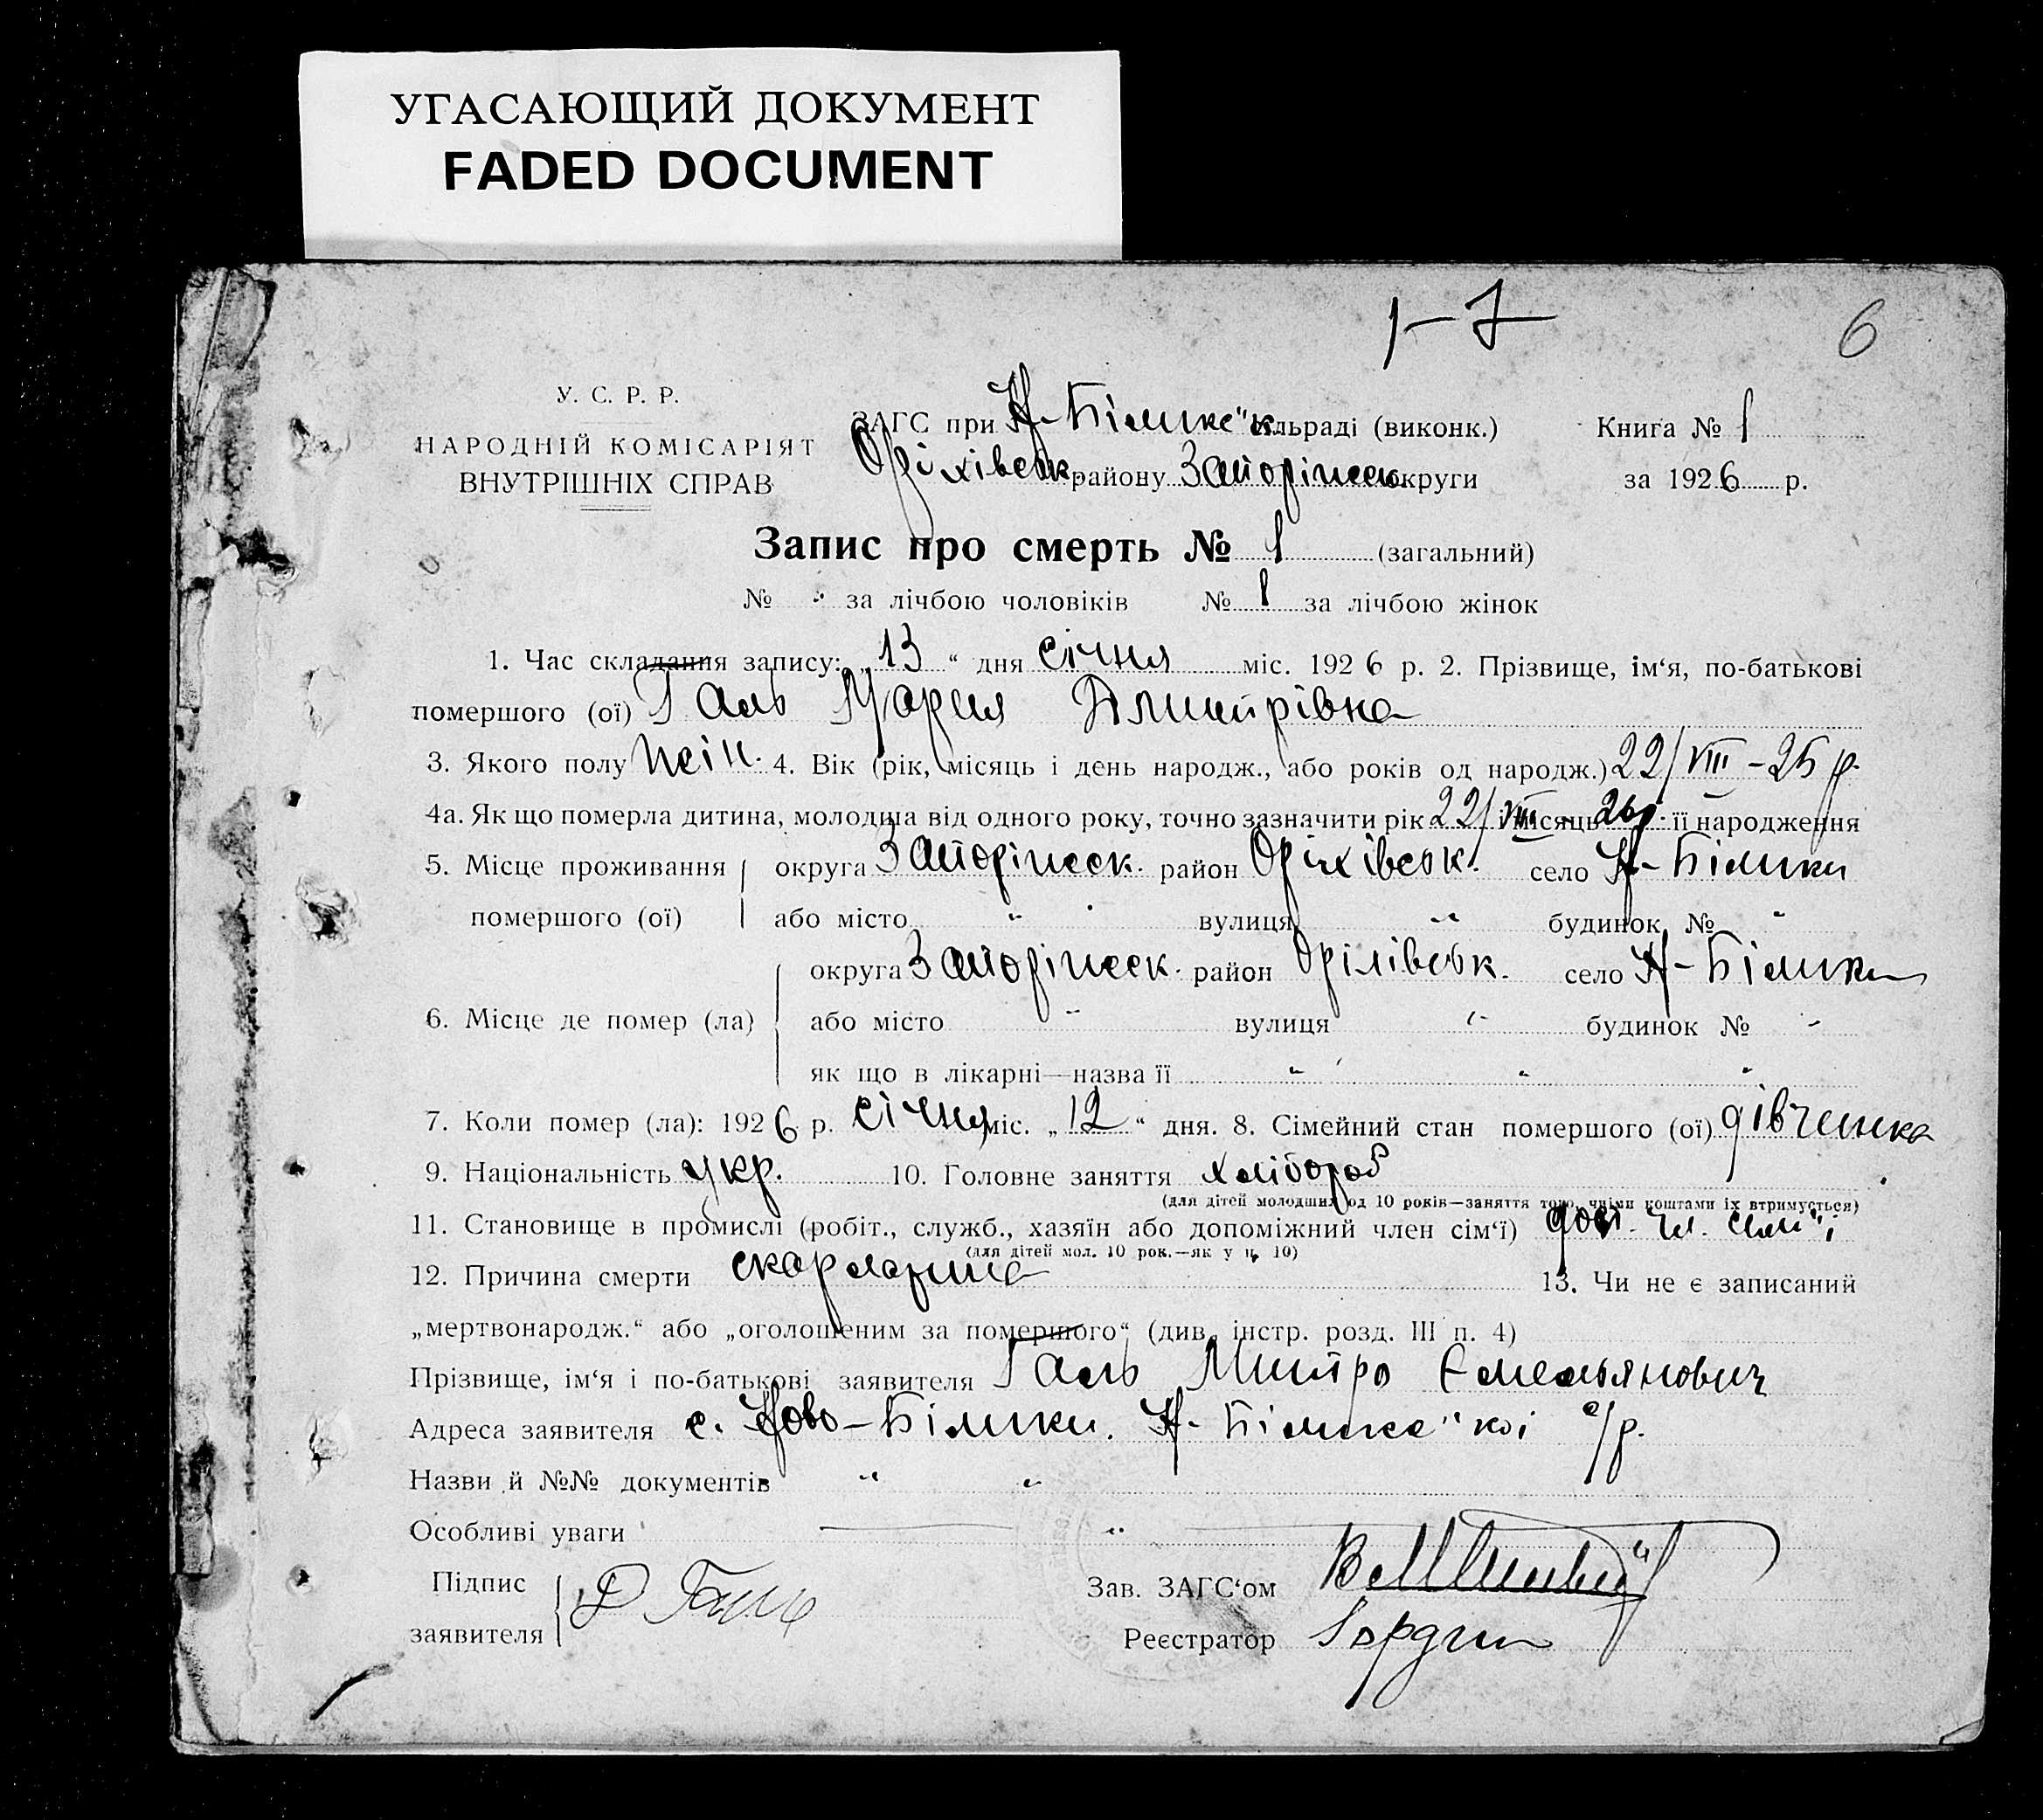 УГАСАЮЩИЙ ДОКУМЕНТ
FADED DOCUMENT
1-7
6
У. С. Р. Р.
НАРОДНІЙ КОМІСАРІЯТ
ВНУТРІШНІХ СПРАВ
ЗАГС при Н-Білике"к. сільраді (виконк.)
Оріхівськ району Запоріжськ. округи
Книга № 1
за 1926 р.
Запис про смерть № 1 (загальний)
№ " за лічбою чоловіків № 1 за лічбою жінок
1. Час складання запису: „13“ дня січня міс. 1926 р. 2. Прізвище, ім‘я, по-батькові
помершого (ої) Галь Мария Дмитрівна
3. Якого полу жін. 4. Вік (рік, місяць і день народж., або років од народж.) 22/VIII-25 р.
4а. Як що померла дитина, молодша від одного року, точно зазначити рік 22/VIII і місяць її народження
5. Місце проживання округа Запоріжськ. район Оріхівськ. село Н-Білики
помершого (ої) або місто " вулиця " будинок № "
округа Запоріжеск. район Орілівськ. село Н-Білики
6. Місце де помер (ла) або місто " вулиця " будинок № "
як що в лікарні—назва її " " "
7. Коли помер (ла): 1926 р. січня міс. „12“ дня. 8. Сімейний стан помершого (ої) дівчинка
9. Національність укр. 10. Головне заняття хлібороб
(для дітей молодших од 10 років—заняття того, чиїми коштами їх втримується)
11. Становище в промислі (робіт., служб., хазяїн або допоміжний член сім‘ї) доп. чл. сім"ї
(для дітей мол. 10 рок.—як у п. 10)
12. Причина смерти скарлатина 13. Чи не є записаний
„мертвонародж.“ або „оголошеним за помершого“ (див. інстр. розд. III п. 4)
Прізвище, ім‘я і по-батькові заявителя Галь Митро Емельянович
Адреса заявителя с. Ново-Білики. Н-Біликс"кої с/р.
Назви й №№ документів " "
Особливі уваги "
Підпис
заявителя Д Галь
Зав. ЗАГС‘ом
Реєстратор